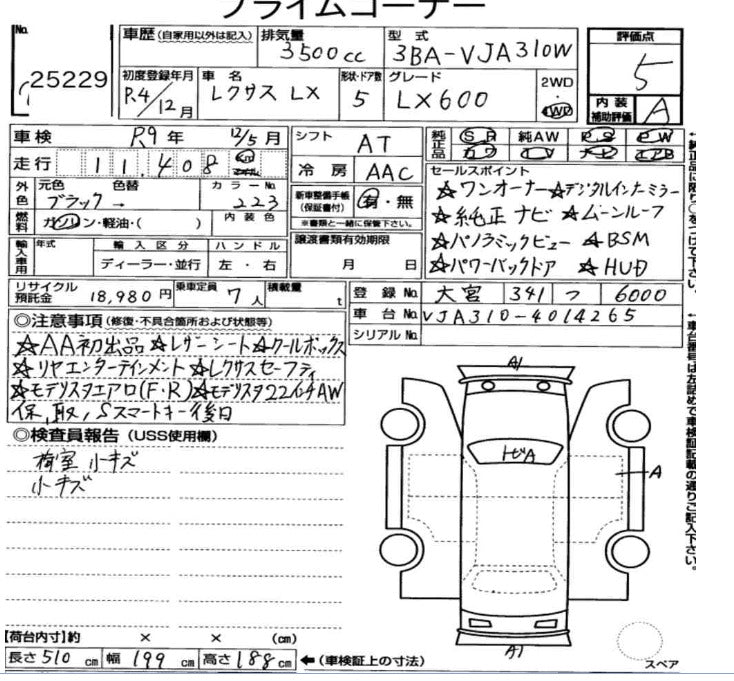 プライムコーナー
No. 25229
車歴(自家用以外は記入) 排気量 3500cc 型式 3BA-VJA310W
初度登録年月 R.4/12月 車名 レクサス LX 形状・ドア数 5 グレード LX600 2WD・4WD
評価点 5
内装補助評価 A
車検 R9年 12/5月 シフト AT
走行 11,408 km マイル 冷房 AAC
外色 元色 ブラック 色替 → カラーNo. 223
燃料 ガソリン・軽油・( ) 内装色
新車整備手帳(保証書付) 有・無
※書類と一緒に保管下さい。
輸入車用 年式 輸入区分 ディーラー・並行 ハンドル 左・右
譲渡書類有効期限 月 日
純正品 SR 純AW PS PW
カワ TV ナビ エアB
セールスポイント
☆ワンオーナー☆デジタルインナーミラー
☆純正ナビ ☆ムーンルーフ
☆パノラミックビュー ☆BSM
☆パワーバックドア ☆HUD
←純正品に限り○をつけて下さい。
リサイクル預託金 18,980円 乗車定員 7人 積載量 t
登録No. 大宮 341 つ 6000
車台No. VJA310-4014265
シリアルNo.
←車台番号は左詰めで車検証記載の通りご記入下さい。
◎注意事項(修復・不具合箇所および状態等)
☆AA初出品☆レザーシート☆クールボックス
☆リヤエンターテインメント☆レクサスセーフティ
☆モデリスタエアロ(F・R)☆モデリスタ22インチAW
保,取,Sスマートキー後日
◎検査員報告(USS使用欄)
小キズ
小キズ
A1
トビA
A
A1
スペア
【荷台内寸】約 × × (cm)
長さ510cm 幅199cm 高さ188cm ←(車検証上の寸法)